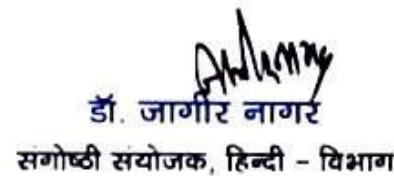 डॉ. जागीर नागर
संगोष्ठी संयोजक, हिन्दी - विभाग